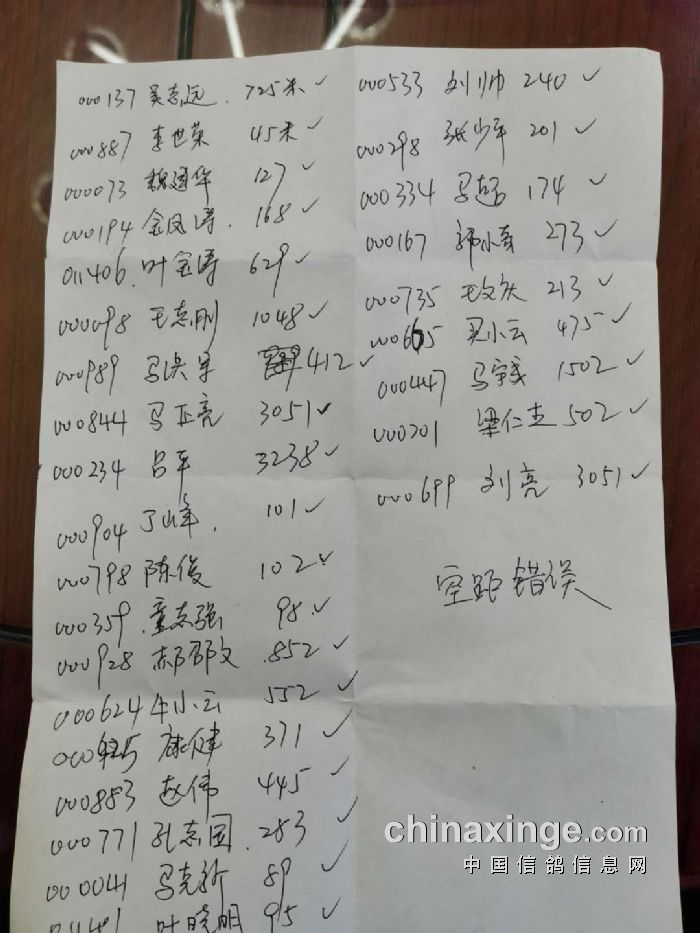 000137 吴志远. 725米✓
000887 李世荣 45米✓
000073 魏建华 127✓
000194 金凤涛. 168✓
011406. 叶宝涛 629✓
000098 王志刚 1048✓
000989 412✓
000844 马正亮 3051✓
000234 吕平 3238✓
000904 丁山峰. 101✓
000798 陈俊 102✓
000359. 童志强 98.✓
000928 郝邵文 .852✓
000624 牛小云 552✓
康健 371✓
000883 赵伟 445✓
000771 孔志国. 283✓
000041 马克新 89✓
叶晓明 915✓
000533 刘帅 240✓
000298 张少军 201✓
000334 174✓
000167 韩小奇 273✓
000735 213✓
000665 吴小云 475✓
000447 1502✓
000201 梁仁杰 502✓
000699 刘亮 3051✓
空距错误
chinaxinge.com
中国信鸽信息网